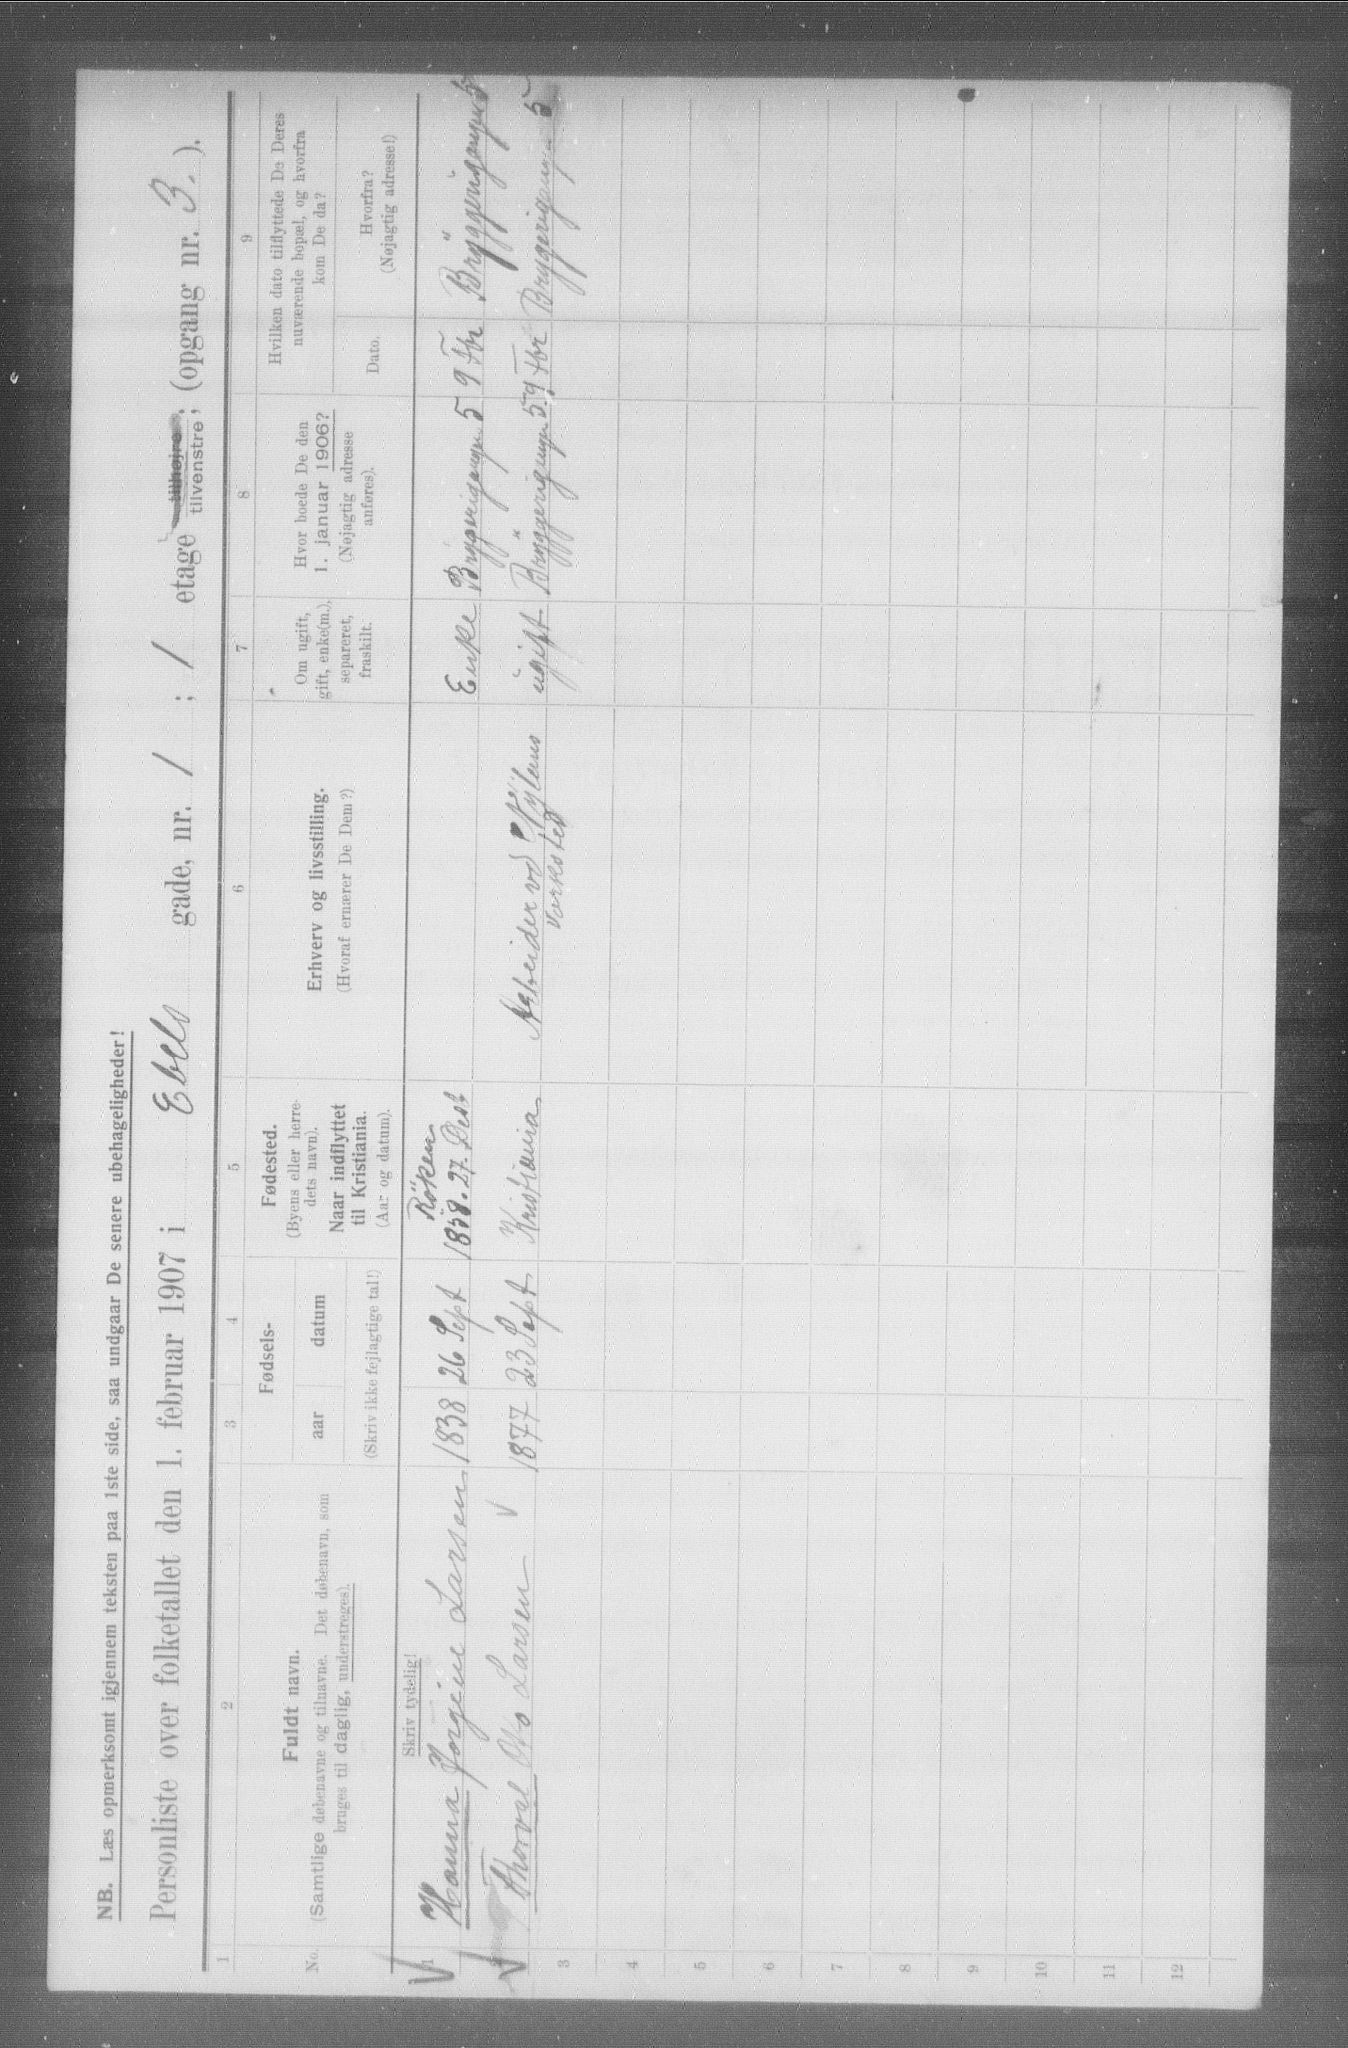 NB. Læs opmerksomt igjennem teksten paa 1ste side, saa undgaar De senere ubehageligheder!
Personliste over folketallet den 1. februar 1907 i Ebels gade, nr. 1 ; 1 etage tilhøjre, tilvenstre; (opgang nr. 3. ).
1 2 3 4 5 6 7 8 9
No.
Fuldt navn.
(Samtlige døbenavne og tilnavne. Det døbenavn, som
bruges til daglig, understreges).
Fødsels-
aar datum
(Skriv ikke fejlagtige tal!)
Fødested.
(Byens eller herre-
dets navn).
Naar indflyttet
til Kristiania.
(Aar og datum).
Erhverv og livsstilling.
(Hvoraf ernærer De Dem?)
Om ugift,
gift, enke(m.),
separeret,
fraskilt.
Hvor boede De den
1. januar 1906?
(Nøjagtig adresse
anføres).
Hvilken dato tilflyttede De Deres
nuværende bopæl, og hvorfra
kom De da?
Dato.
Hvorfra?
(Nøjagtig adresse!)
Skriv tydelig!
Röken
1 Hanna Jorgine Larsen 1838 26 Sept 1858. 27. Enke Bryggerigangen 5 9 Fbr Bryggerigangen 5
Thorval Otto Larsen 1877 23 Sept Kristiania Arbeider vd Nylans ugift Bryggerigangen 5 9 Fbr Bryggerigangen 5
Værksted
3
4
5
6
7
8
9
10
11
12